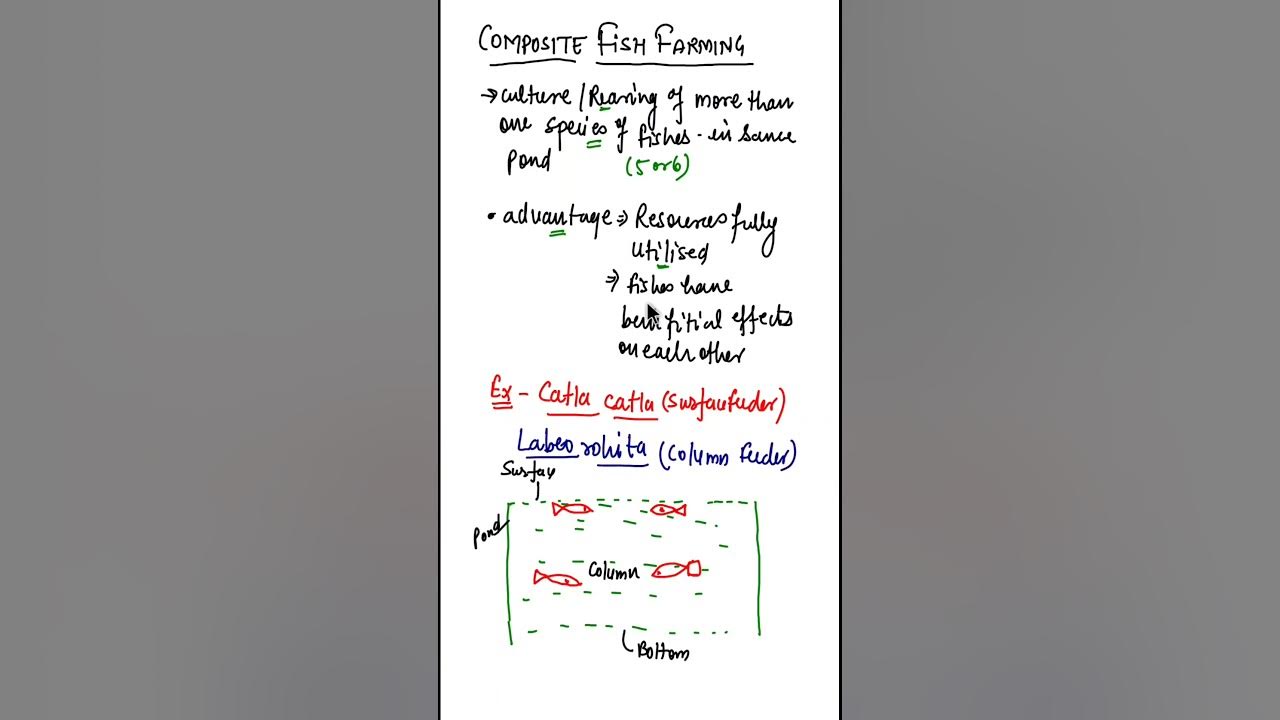 COMPOSITE FISH FARMING
→ culture / Rearing of more than
one species of fishes - in same
pond (5 or 6)
• advantage ⇒ Resources fully
utilised
⇒ fishes have
benifitial effects
on each other
Ex - Catla catla (surface feeder)
Labeo rohita (column feeder)
Surfac
Pond
Column
Bottom